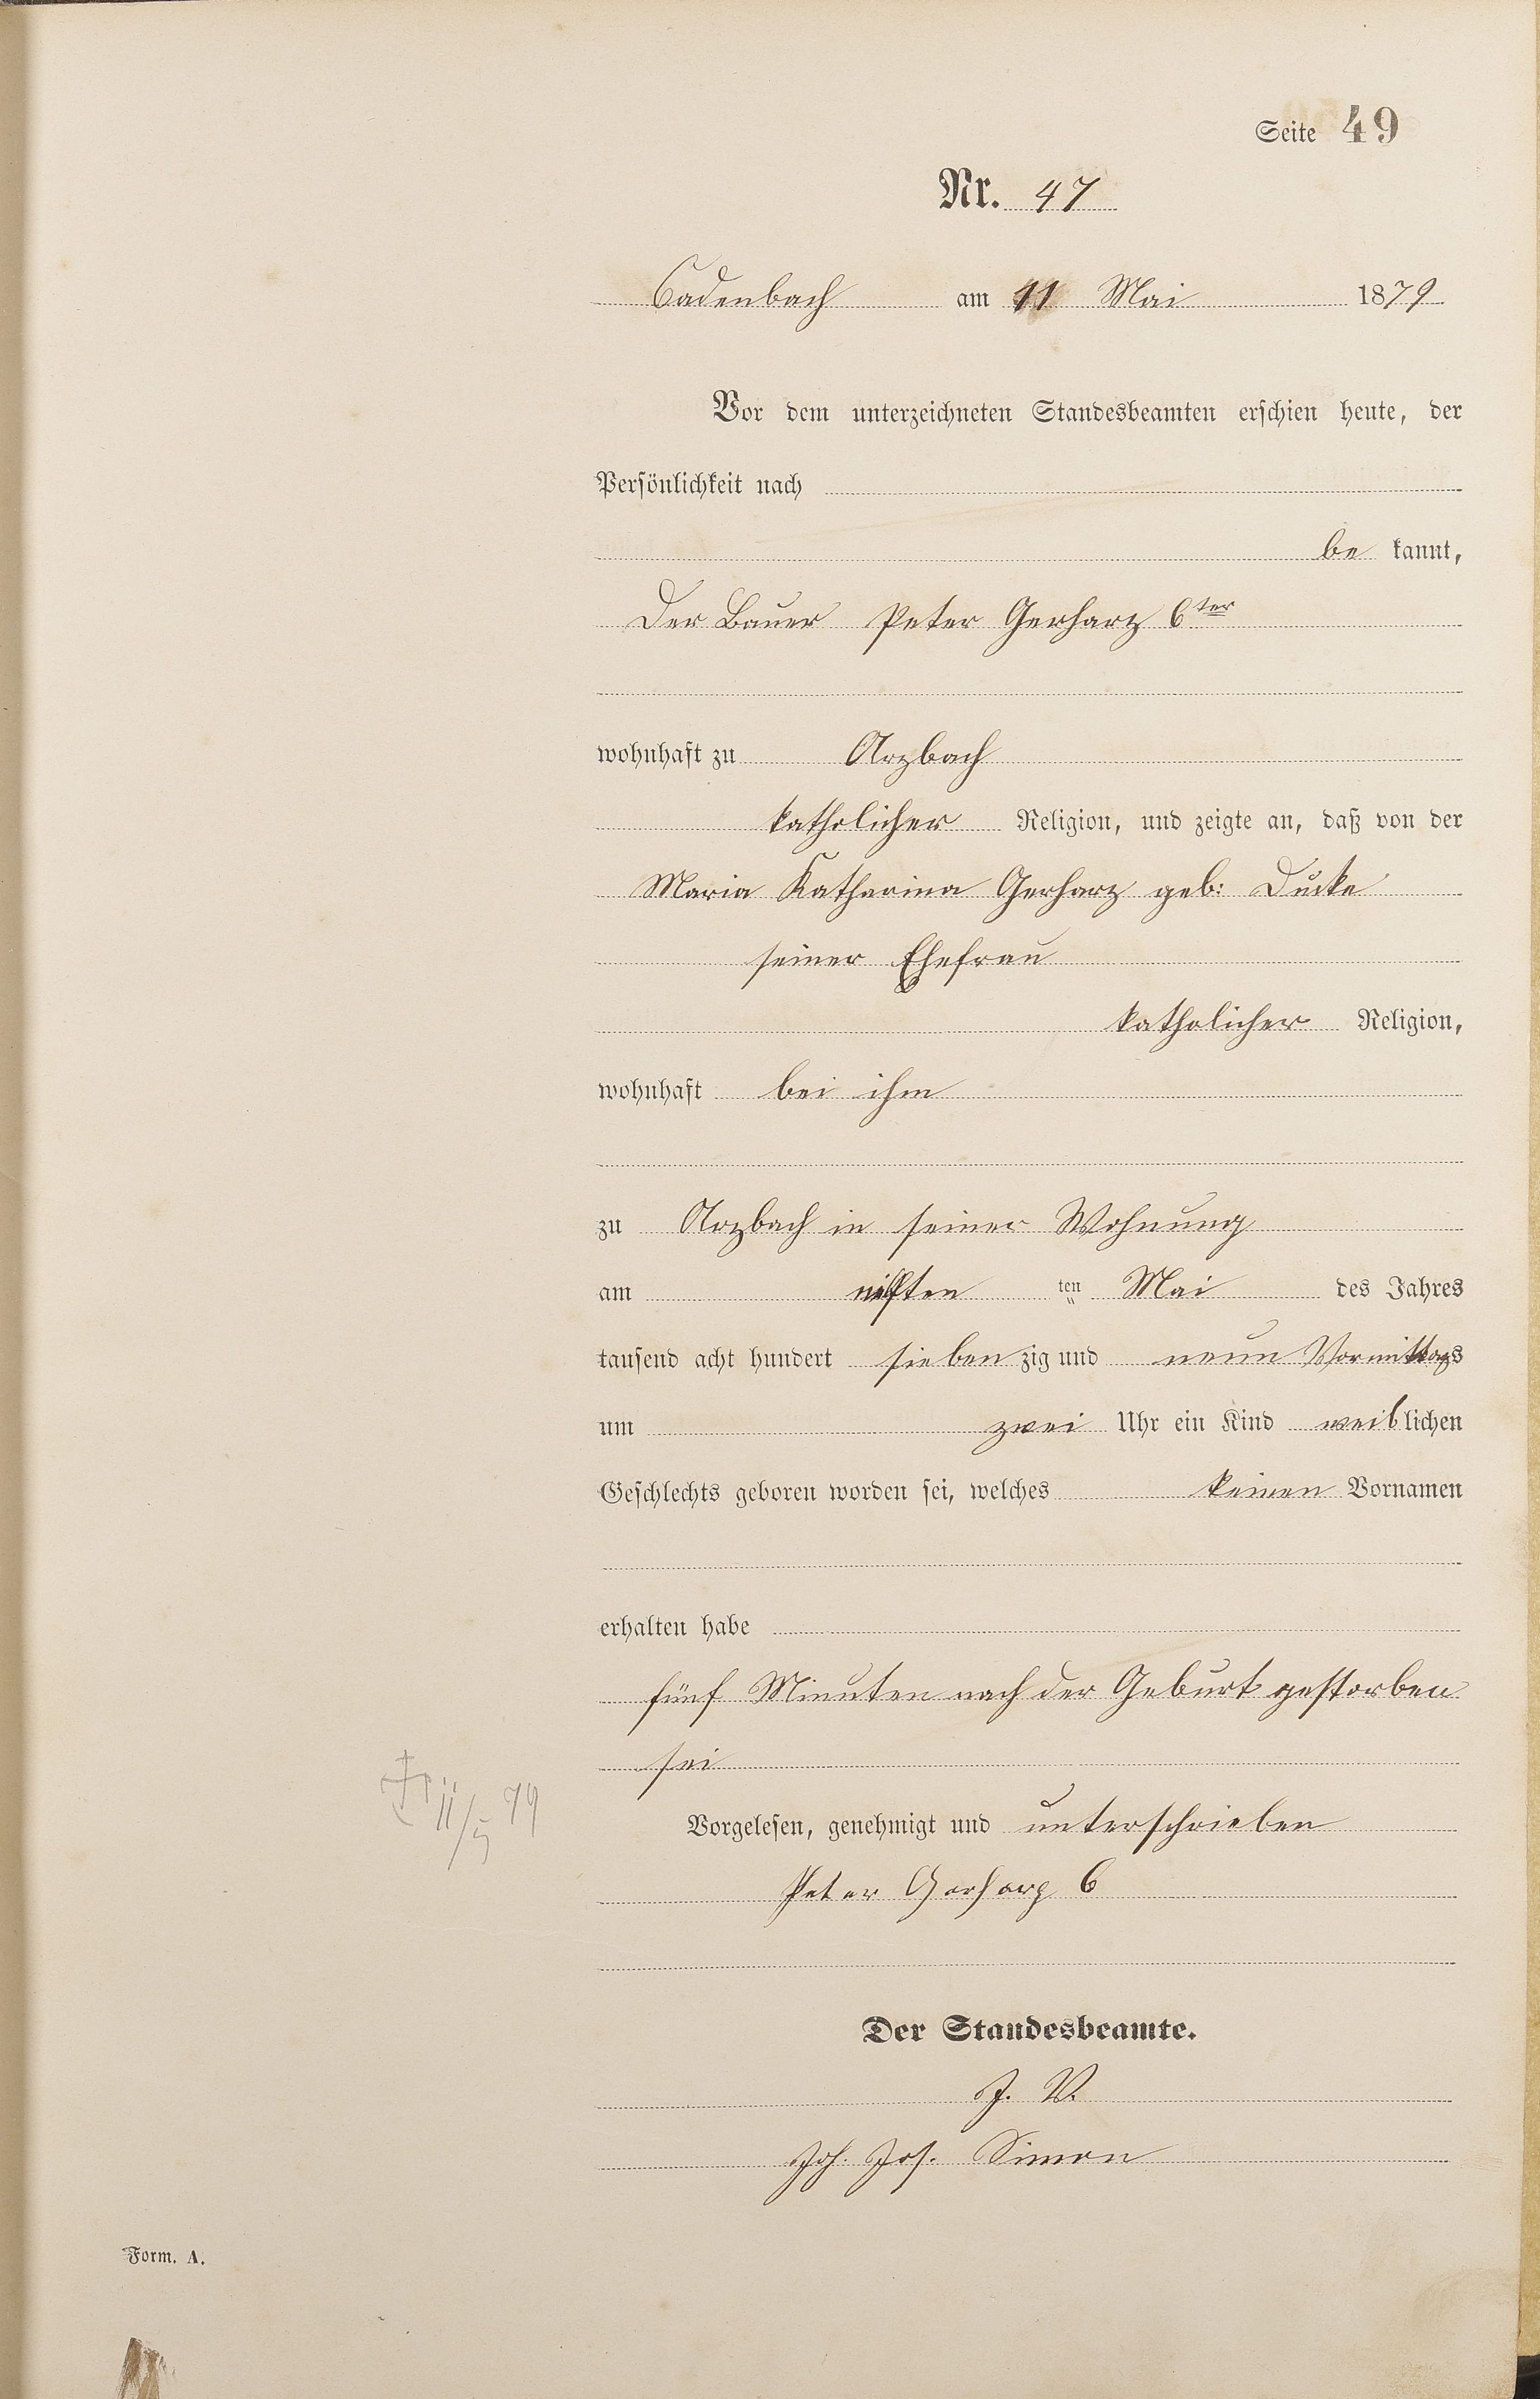 Seite 49
Nr. 47
Cadenbach am 11 Mai 1879
Vor dem unterzeichneten Standesbeamten erschien heute, der
Persönlichkeit nach
be kannt,
Der Bauer Peter Gerharz 6ter
wohnhaft zu Arzbach
katholicher Religion, und zeigte an, daß von der
Maria Katharina Gerharz geb: Ducke
seiner Ehefrau
katholicher Religion,
wohnhaft bei ihm
zu Arzbach in seiner Wohnung
am eilften ten Mai des Jahres
tausend acht hundert sieben zig und neun Vormittags
um zwei Uhr ein Kind weiblichen
Geschlechts geboren worden sei, welches keinen Vornamen
erhalten habe
fünf Minuten nach der Geburt gestorben
sei
† 11/5 79
Vorgelesen, genehmigt und unterschrieben
Peter Gerharz 6
Der Standesbeamte.
J. V.
Joh. Jos. Simon
Form. A.